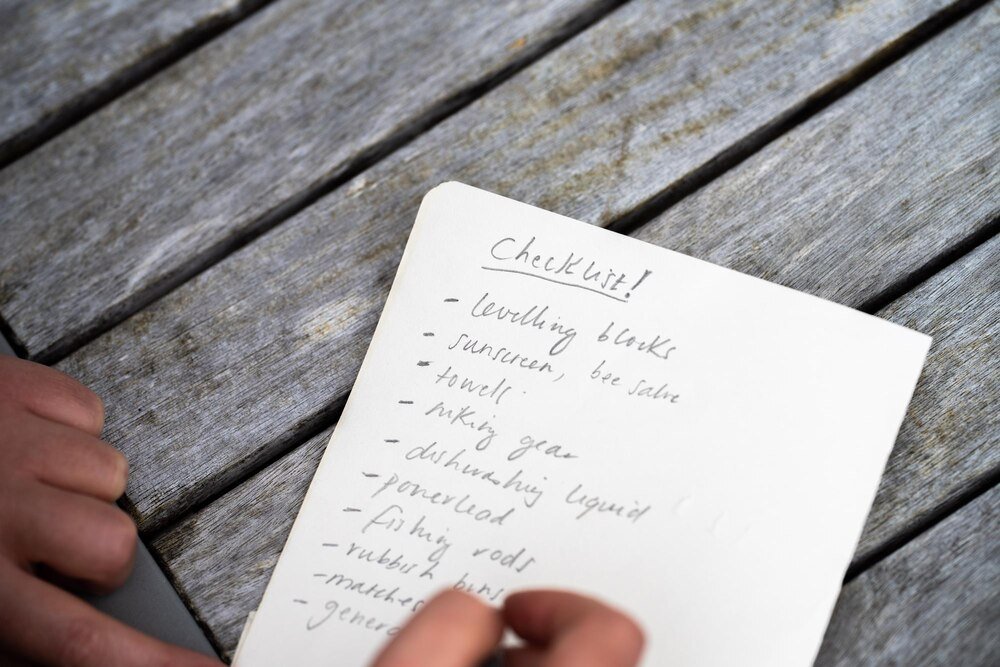 Checklist!
- levelling blocks
- sunscreen, bee salve
- towels
- hiking gear
- dishwashing liquid
- powerlead
- fishing rods
- rubbish bins
- matches
-